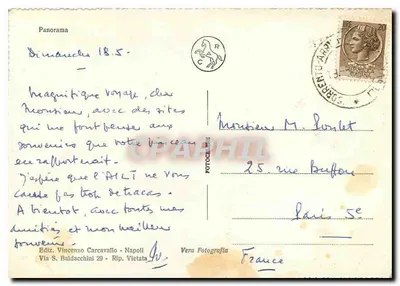 Panorama
Dimanche 18.5.
C R
Magnifique voyage, cher
Monsieur, avec des sites
qui me font penser aux
souvenirs que votre
en rapportait.
J'espère que l'AILI ne vous
cause pas trop de tracas.
A bientôt, avec toutes mes
amitiés et mon meilleur
souvenir.
Ediz. Vincenzo Carcavallo - Napoli
Via S. Baldacchini 29 - Rip. Vietata
Vera Fotografia
FOTOCELERE
20
SORRENTO
Monsieur M.
25, rue Buffon
Paris 5e
France